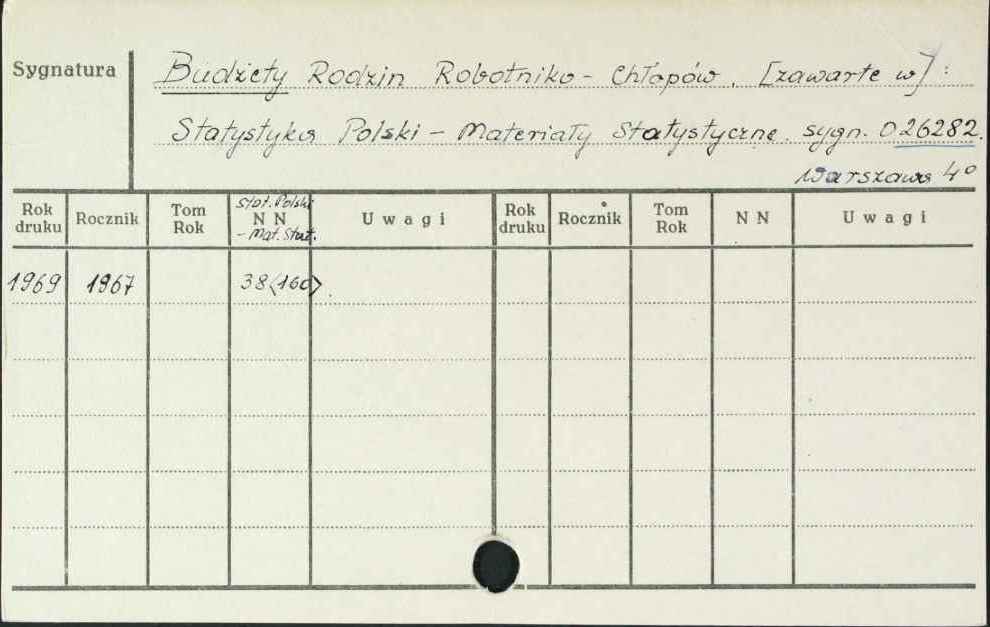 Sygnatura
Budżety Rodzin Robotniko - Chłopów. [zawarte w]:
Statystyka Polski - Materiały Statystyczne. sygn. 026282.
Warszawa 4°
Rok druku Rocznik Tom Rok Stat. Polski N N - Mat. Stat. Uwagi Rok druku Rocznik Tom Rok N N Uwagi
1969 1967 38<160>